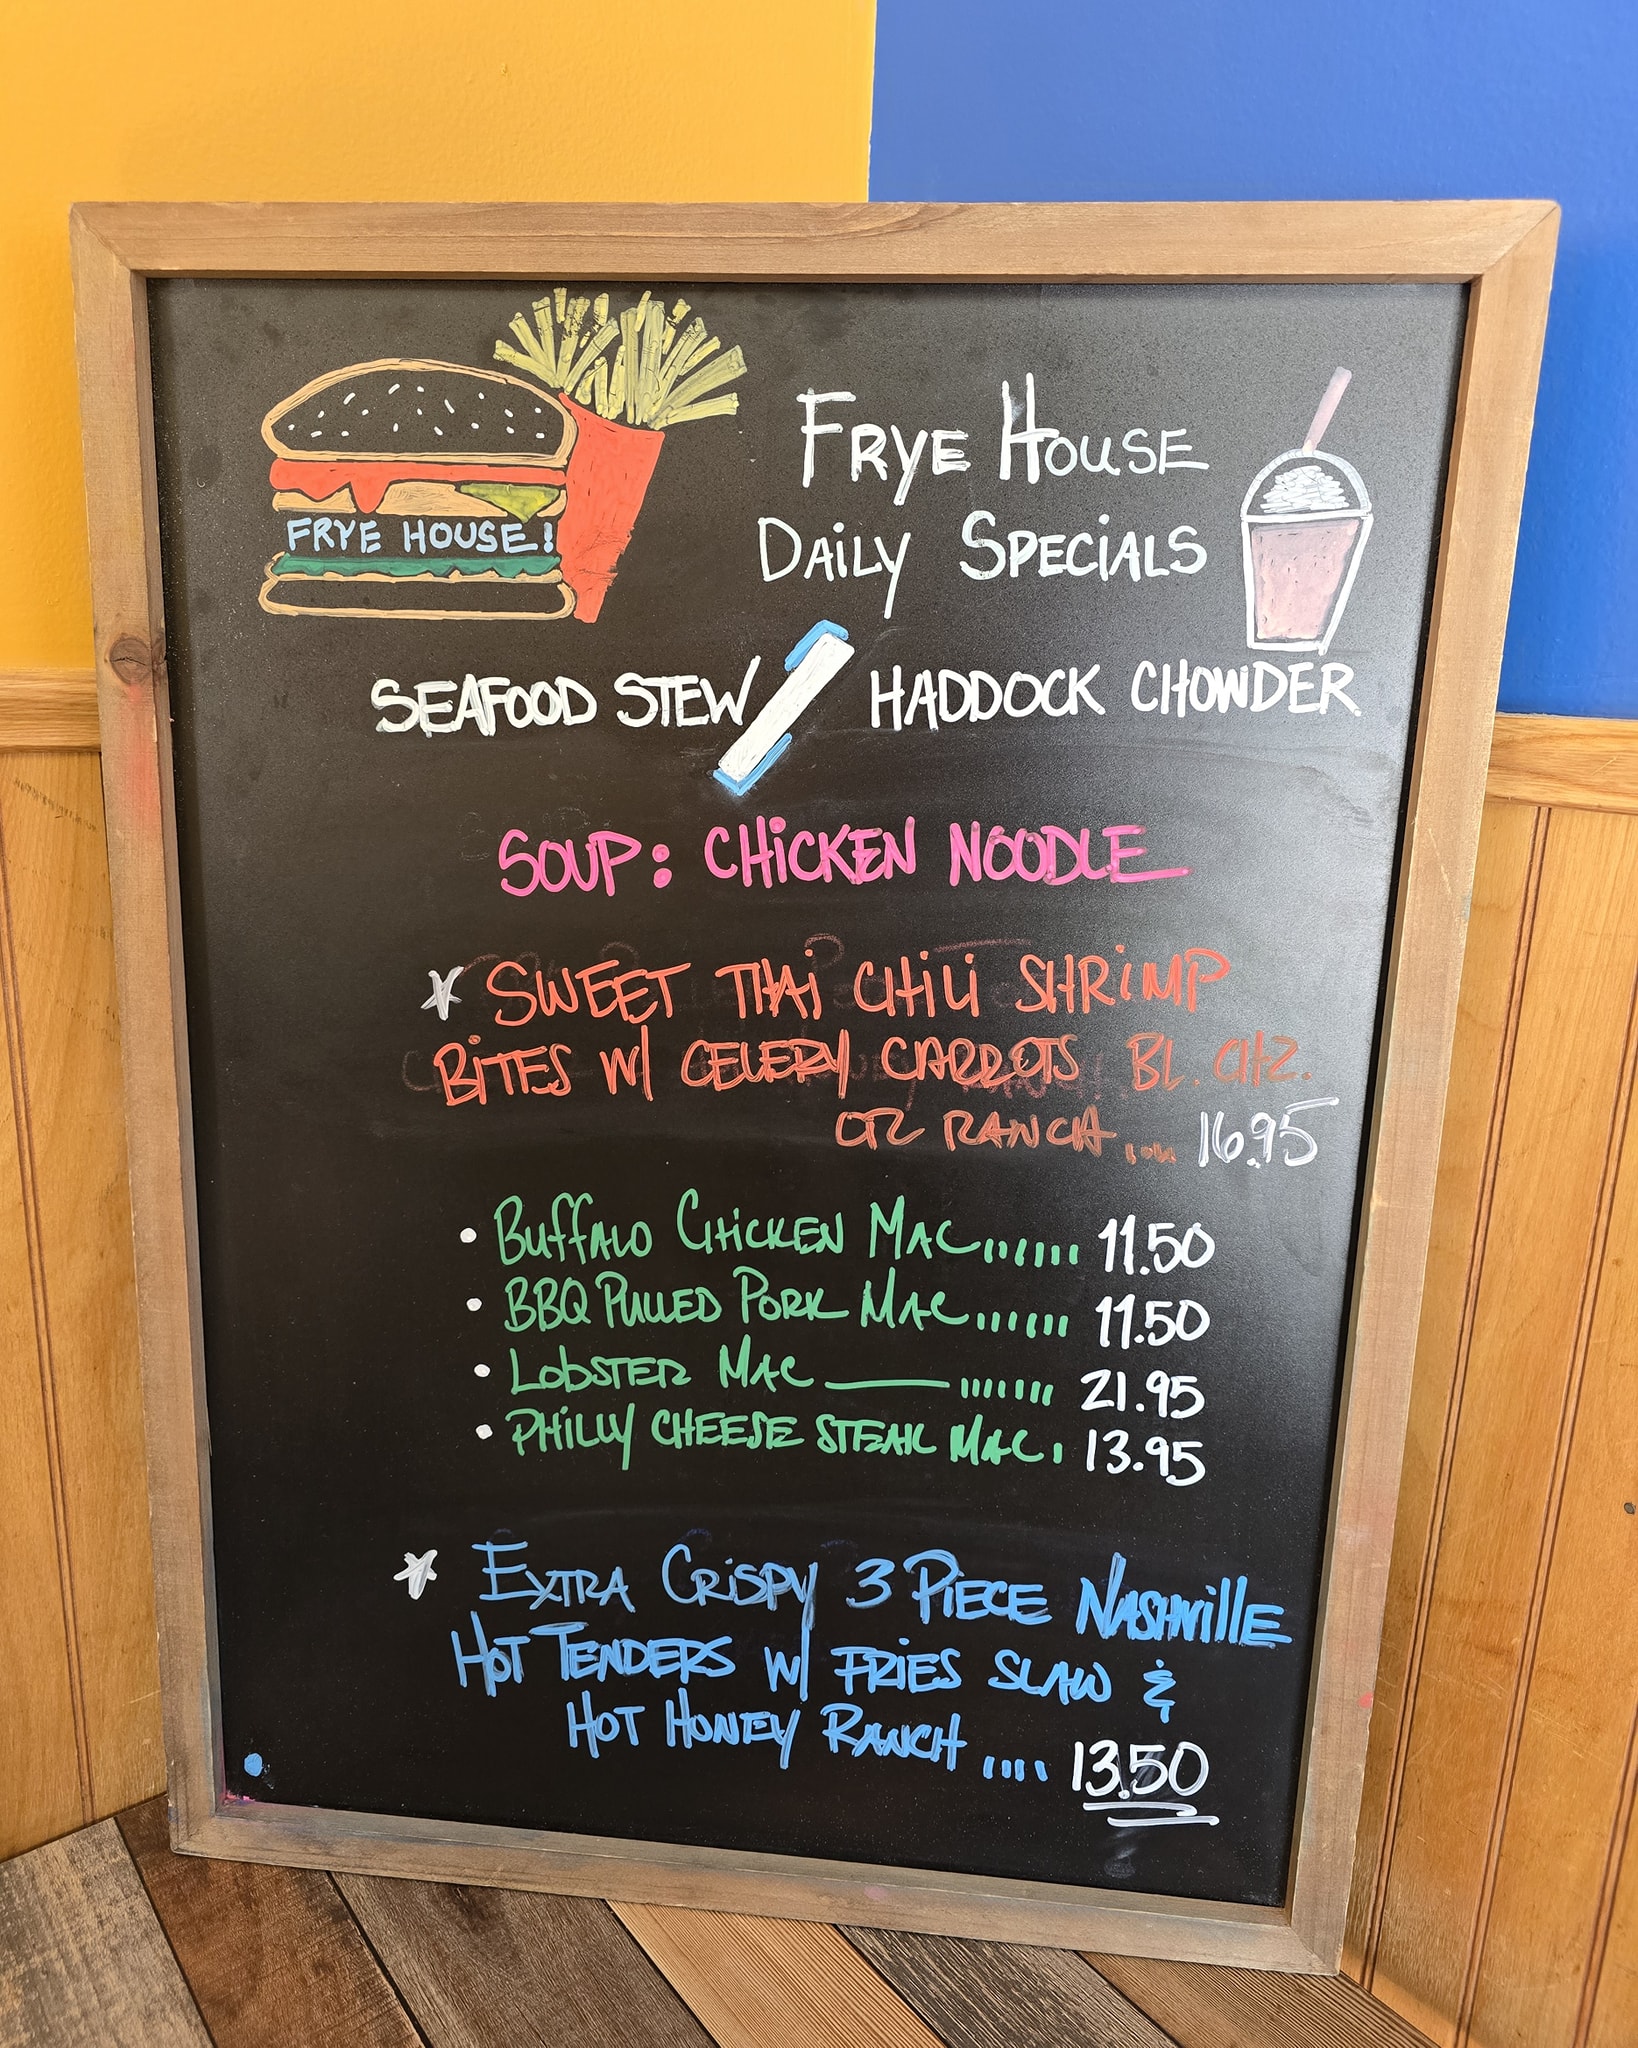 FRYE HOUSE!
FRYE HOUSE
DAILY SPECIALS
SEAFOOD STEW / HADDOCK CHOWDER
SOUP: CHICKEN NOODLE
* SWEET THAI CHILI SHRIMP
BITES W/ CELERY CARROTS BL. CHZ.
OR RANCH.... 16.95
• BUFFALO CHICKEN MAC...... 11.50
• BBQ PULLED PORK MAC...... 11.50
• LOBSTER MAC ——....... 21.95
• PHILLY CHEESE STEAK MAC. 13.95
* EXTRA CRISPY 3 PIECE NASHVILLE
HOT TENDERS W/ FRIES SLAW &
HOT HONEY RANCH .... 13.50